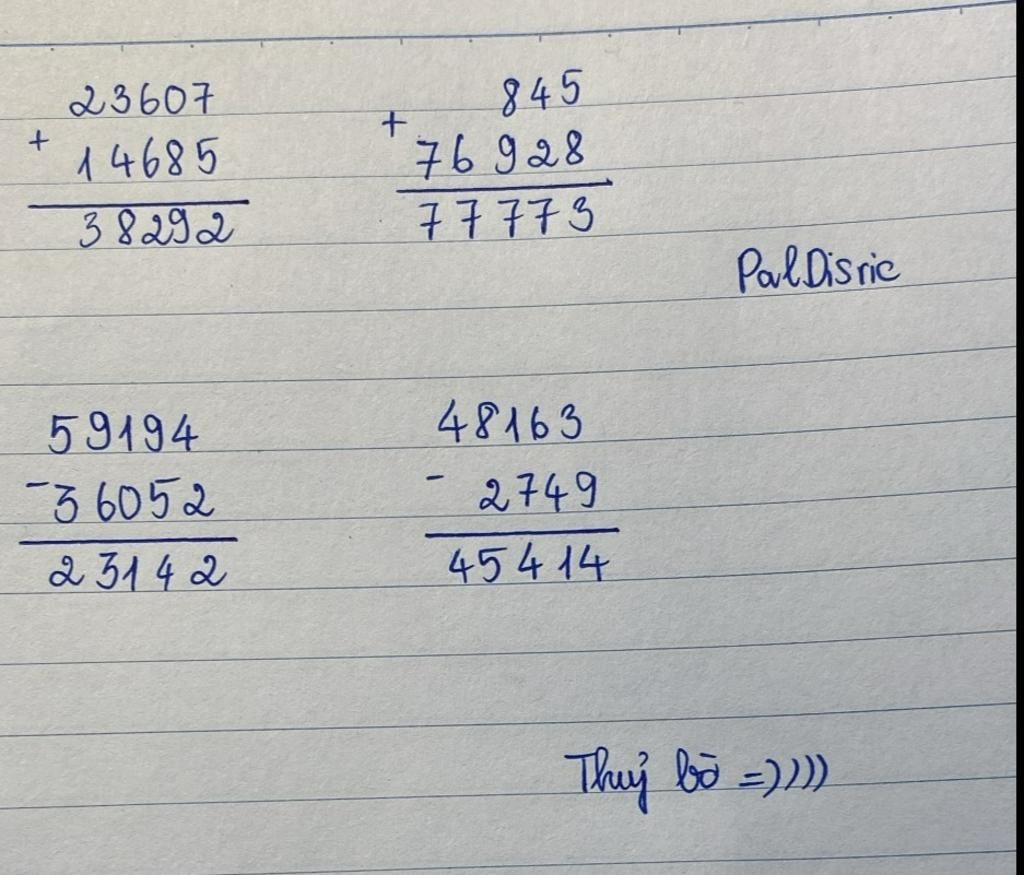 23607
+
14685
38292
845
+
76928
77773
PalDisric
59194
-36052
23142
48163
- 2749
45414
Thuỷ bò =))))